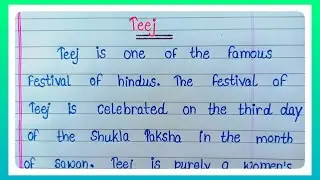 Teej
Teej is one of the famous
festival of hindus. The festival of
Teej is celebrated on the third day
of the Shukla Paksha in the month
of sawan. Teej is purely a women's